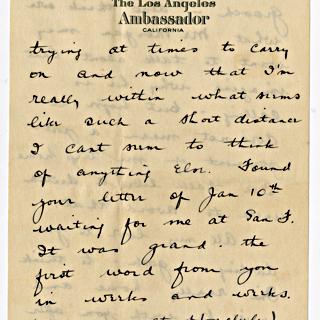 The Los Angeles
Ambassador
CALIFORNIA
trying at times to carry
on and now that I'm
really within what seems
like such a short distance
I cant seem to think
of anything else. Found
your letter of Jan 10th
waiting for me at San F.
It was grand. the
first word from you
in weeks and weeks.
at Honolulu)